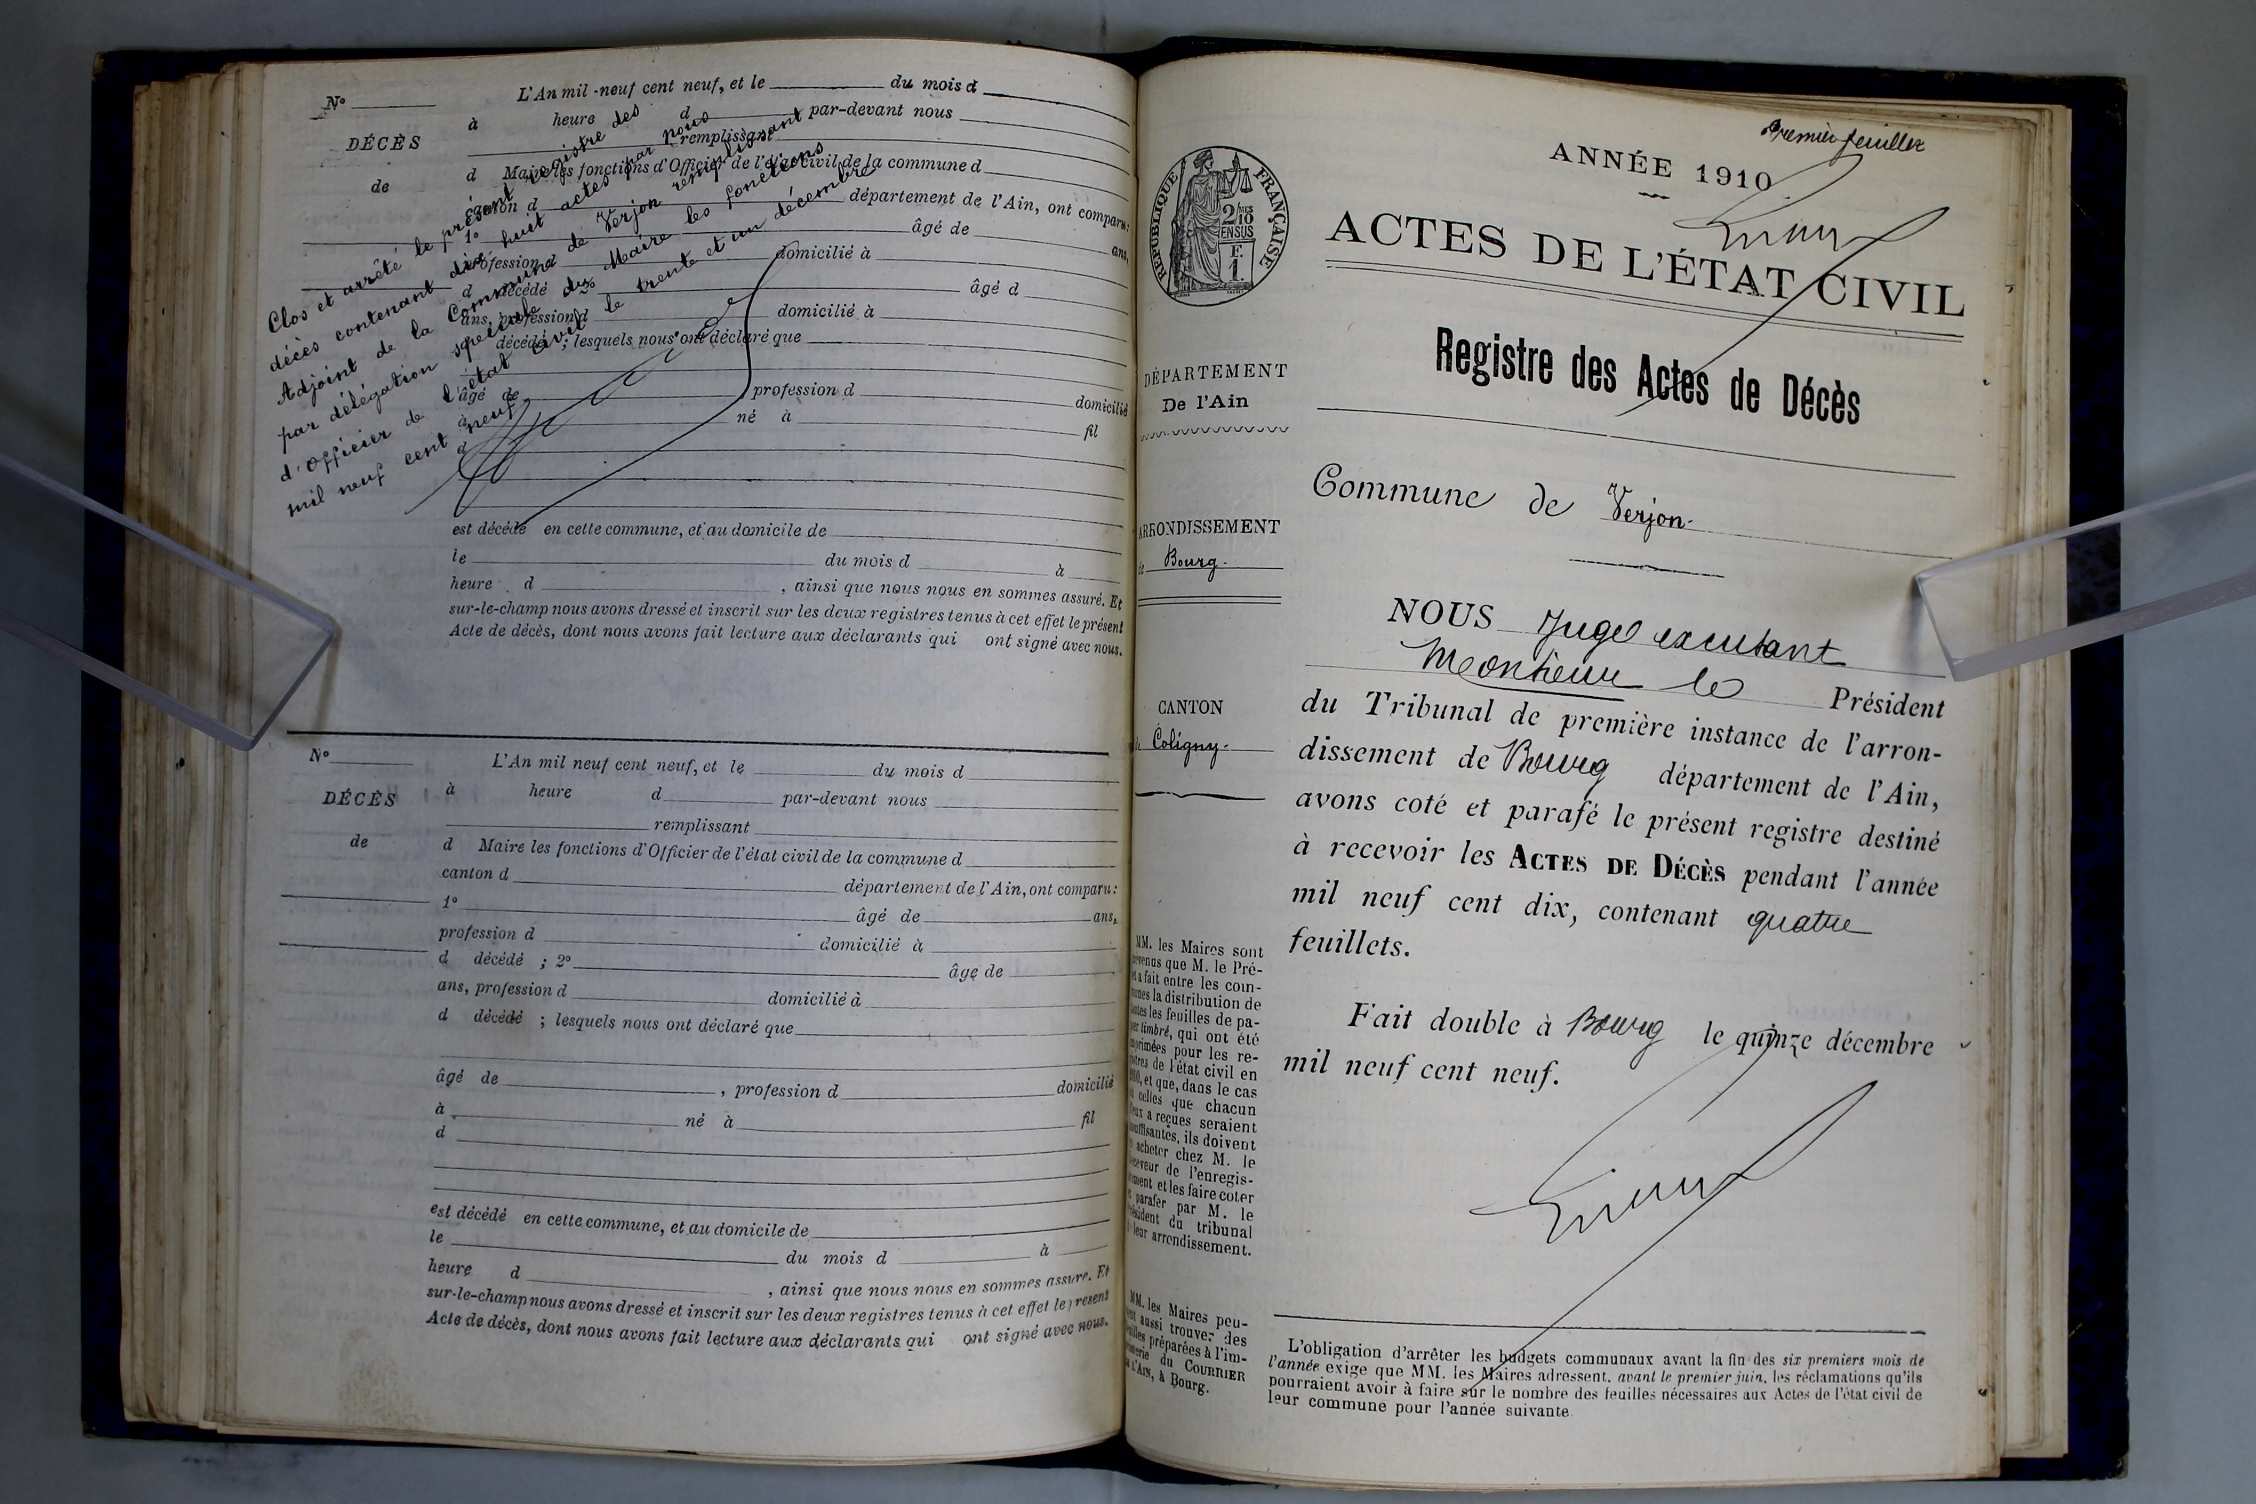 N° L'An mil-neuf cent neuf, et le du mois d
DÉCÈS à heure d par-devant nous
remplissant
de d Maire les fonctions d'Officier de l'état civil de la commune d
canton d département de l'Ain, ont comparu:
1° âgé de ans,
profession d domicilié à
d décédé ; 2° âgé d
ans, profession d domicilié à
d décédé ; lesquels nous ont déclaré que
âgé de profession d domicilié
à né à fil
d
est décédé en cette commune, et au domicile de
le du mois d à
heure d , ainsi que nous nous en sommes assuré. Et
sur-le-champ nous avons dressé et inscrit sur les deux registres tenus à cet effet le présent
Acte de décès, dont nous avons fait lecture aux déclarants qui ont signé avec nous.
Clos et arrêté le présent registre des
décès contenant dix huit actes par nous
Adjoint de la Commune de Verjon remplissant
par délégation spéciale du Maire les fonctions
d'Officier de l'état civil le trente et un décembre
mil neuf cent neuf
N° L'An mil neuf cent neuf, et le du mois d
DÉCÈS à heure d par-devant nous
remplissant
de d Maire les fonctions d'Officier de l'état civil de la commune d
canton d département de l'Ain, ont comparu:
1° âgé de ans,
profession d domicilié à
d décédé ; 2° âge de
ans, profession d domicilié à
d décédé ; lesquels nous ont déclaré que
âgé de , profession d domicilié
à né à fil
d
est décédé en cette commune, et au domicile de
le du mois d à
heure d , ainsi que nous nous en sommes assure. Et
sur-le-champ nous avons dressé et inscrit sur les deux registres tenus à cet effet le présent
Acte de décès, dont nous avons fait lecture aux déclarants qui ont signé avec nous.
Premier feuillet
ANNÉE 1910
RÉPUBLIQUE FRANÇAISE
2/10
EN SUS
F.
1.
ACTES DE L'ÉTAT CIVIL
Registre des Actes de Décès
DÉPARTEMENT
De l'Ain
Commune de Verjon.
ARRONDISSEMENT
de Bourg.
CANTON
de Coligny.
NOUS Juge excusant
Monsieur le Président
du Tribunal de première instance de l'arron-
dissement de Bourg département de l'Ain,
avons coté et parafé le présent registre destiné
à recevoir les ACTES DE DÉCÈS pendant l'année
mil neuf cent dix, contenant quatre
feuillets.
Fait double à Bourg le quinze décembre
mil neuf cent neuf.
MM. les Maires sont
prévenus que M. le Pré-
fet a fait entre les com-
munes la distribution de
toutes les feuilles de pa-
pier timbré, qui ont été
imprimées pour les re-
gistres de l'état civil en
1910, et que, dans le cas
où celles que chacun
d'eux a reçues seraient
insuffisantes, ils doivent
en acheter chez M. le
Receveur de l'enregis-
trement et les faire coter
et parafer par M. le
Président du tribunal
de leur arrondissement.
MM. les Maires peu-
vent aussi trouver des
feuilles préparées à l'im-
primerie du COURRIER
de l'AIN, à Bourg.
L'obligation d'arrêter les budgets communaux avant la fin des six premiers mois de
l'année exige que MM. les Maires adressent, avant le premier juin, les réclamations qu'ils
pourraient avoir à faire sur le nombre des feuilles nécessaires aux Actes de l'état civil de
leur commune pour l'année suivante.